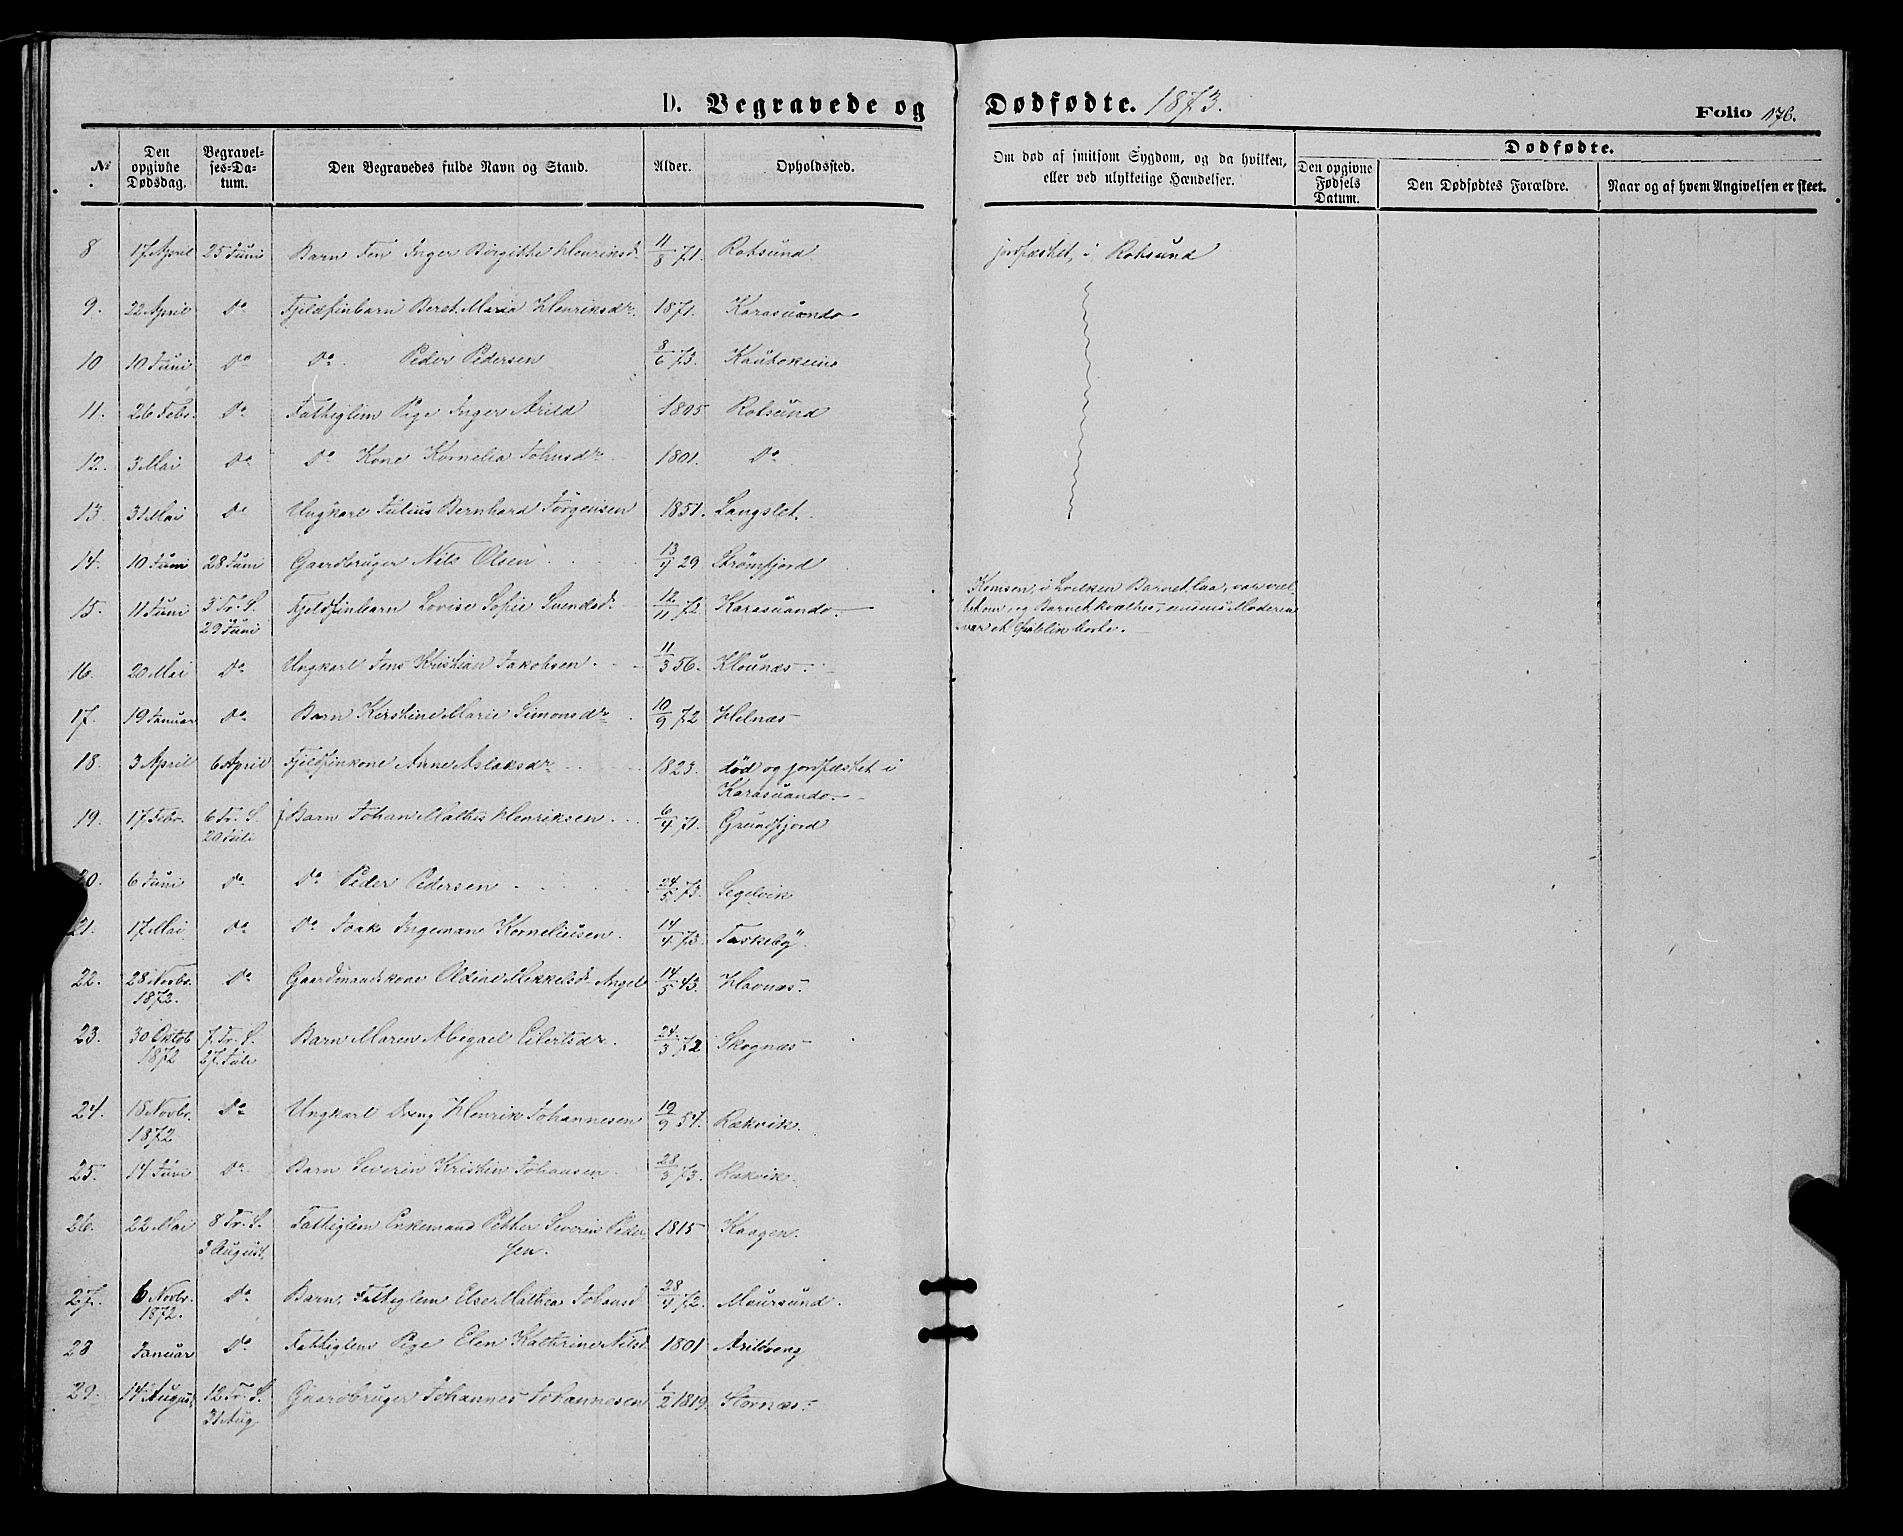 D. Begravede og Dødfødte. 1873. Folio 176.
№ Den opgivne Dødsdag. Begravelses-Datum. Den Begravedes fulde Navn og Stand. Alder. Opholdssted. Om død af smitsom Sygdom, og da hvilken, eller ved ulykkelige Hændelser. Dødfødte. Den opgivne Fødsels Datum. Den Dødfødtes Forældre. Naar og af hvem Angivelsen er skeet.
8 17 April 25 Juni Barn Fin Inger Birgithe Henriksd. 11/8 71. Rotsund jordfæstet, i Rotsund
9. 22 April Do Fjeldfinbarn Beret Maria Henriksdr. 1871. Karasuando
10 10 Juni Do Do. Peder Pedersen 8/6 73. Kautokeino
11. 26 Febr. Do Fattiglem Pige Inger Arild 1805 Rotsund
12. 3 Mai Do Do Kone Kornelia Johnsdr 1801. Do
13. 31 Mai Do Ungkarl Julius Bernhard Jørgensen 1851. Langslet.
14. 10 Juni 28 Juni Gaardbruger Nils Olsen 13/9 29 Strømfjord
15. 11 Juni 3 Tr. S. Fjeldfinbarn Lovise Sofie Svendsd. 12/11 72 Karasuando. Komsen, i hvilken Barnet laa, var vel-
29 Juni tet om, og Barnet kvaltes, Moderen
var et borte.
16. 20 Mai Do Ungkarl Jens Kristian Jakobsen 11/3 56. Klounæs
17. 19 Januar Do Barn Kirstine Marie Simonsdr 10/9 72 Helnæs
18. 3 April 6 April Fjeldfinkone Anne Aslaksdr 1823. død og jordfæstet i
Karasuando.
19. 17 Febr. 6 Tr. S. Barn Johan Mathis Henriksen 6/4 71. Grundfjord
20 Juli
20. 6 Juni Do Do Peder Pedersen 24/5 73. Segelvik
21. 17 Mai Do Do Isak Ingeman Korneliusen. 14/4 73. Taskeby.
22. 28 Novbr. Do Gaardmandskone Oldine Mikkelsd. Angel 14/5 43. Havnæs.
1872.
23. 30 Oktob 7 Tr. S. Barn Maren Abegael Eilertsdr. 24/3 72 Skognæs
1872 27 Juli
24. 18 Novbr. Do Ungkarl Dreng Henrik Johannesen 19/9 54. Rækvik.
1872
25. 14 Juni Do. Barn Severin Kristin Johansen. 28/3 73. Rækvik
26. 22 Mai 8 Tr. S. Fattiglem Enkemand Petter Severin Peder 1815 Kaagen.
3 August. sen.
27. 6 Novbr. Do Barn, Fattiglem Else Mathea Johansd. 28/4 72. Maursund.
1872.
28 Januar Do Fattiglem Pige Elen Kathrine Nilsd. 1801 Arildseng
29. 14 August 12 Tr. S. Gaardbruger Johannes Johannesen 1/2 1819. Stornæs.
31 Aug